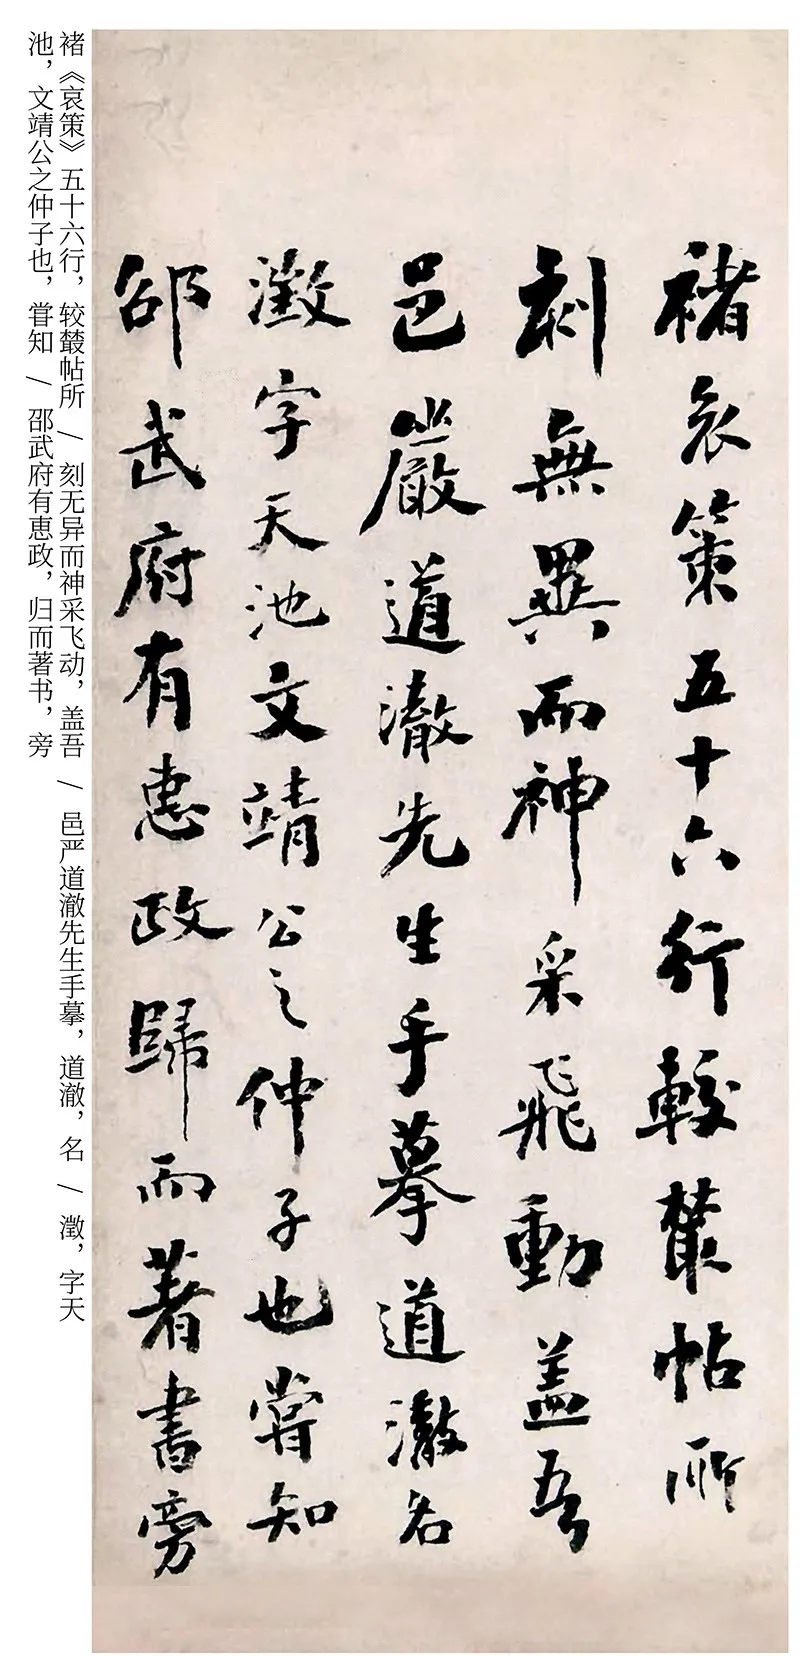 褚哀策五十六行較叢帖所
刻無異而神采飛動盖吾
邑嚴道澈先生手摹道澈名
澂字天池文靖公之仲子也甞知
邵武府有恵政歸而著書旁
褚《哀策》五十六行，较藂帖所 / 刻无异而神采飞动，盖吾 / 邑严道澈先生手摹，道澈，名 / 澂，字天
池，文靖公之仲子也，甞知 / 邵武府有恵政，归而著书，旁